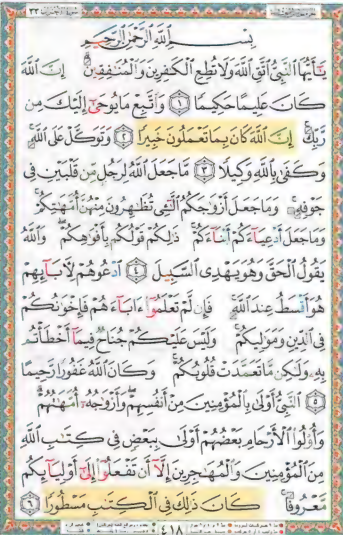 بِسْمِ اللَّهِ الرَّحْمَٰنِ الرَّحِيمِ
يَٰٓأَيُّهَا النَّبِيُّ اتَّقِ اللَّهَ وَلَا تُطِعِ الْكَٰفِرِينَ وَالْمُنَٰفِقِينَ ۗ إِنَّ اللَّهَ
كَانَ عَلِيمًا حَكِيمًا ١ وَاتَّبِعْ مَا يُوحَىٰٓ إِلَيْكَ مِن
رَّبِّكَ ۚ إِنَّ اللَّهَ كَانَ بِمَا تَعْمَلُونَ خَبِيرًا ٢ وَتَوَكَّلْ عَلَى اللَّهِ ۚ
وَكَفَىٰ بِاللَّهِ وَكِيلًا ٣ مَّا جَعَلَ اللَّهُ لِرَجُلٍ مِّن قَلْبَيْنِ فِي
جَوْفِهِۦ ۚ وَمَا جَعَلَ أَزْوَٰجَكُمُ الَّٰٓـِٔي تُظَٰهِرُونَ مِنْهُنَّ أُمَّهَٰتِكُمْ ۚ
وَمَا جَعَلَ أَدْعِيَآءَكُمْ أَبْنَآءَكُمْ ۚ ذَٰلِكُمْ قَوْلُكُم بِأَفْوَٰهِكُمْ ۖ وَاللَّهُ
يَقُولُ الْحَقَّ وَهُوَ يَهْدِي السَّبِيلَ ٤ ادْعُوهُمْ لِءَابَآئِهِمْ
هُوَ أَقْسَطُ عِندَ اللَّهِ ۚ فَإِن لَّمْ تَعْلَمُوٓا۟ ءَابَآءَهُمْ فَإِخْوَٰنُكُمْ
فِي الدِّينِ وَمَوَٰلِيكُمْ ۚ وَلَيْسَ عَلَيْكُمْ جُنَاحٌ فِيمَآ أَخْطَأْتُم
بِهِۦ وَلَٰكِن مَّا تَعَمَّدَتْ قُلُوبُكُمْ ۚ وَكَانَ اللَّهُ غَفُورًا رَّحِيمًا
٥ النَّبِيُّ أَوْلَىٰ بِالْمُؤْمِنِينَ مِنْ أَنفُسِهِمْ ۖ وَأَزْوَٰجُهُۥٓ أُمَّهَٰتُهُمْ ۗ
وَأُو۟لُوا۟ الْأَرْحَامِ بَعْضُهُمْ أَوْلَىٰ بِبَعْضٍ فِي كِتَٰبِ اللَّهِ
مِنَ الْمُؤْمِنِينَ وَالْمُهَٰجِرِينَ إِلَّآ أَن تَفْعَلُوٓا۟ إِلَىٰٓ أَوْلِيَآئِكُم
مَّعْرُوفًا ۚ كَانَ ذَٰلِكَ فِي الْكِتَٰبِ مَسْطُورًا ٦
٤١٨